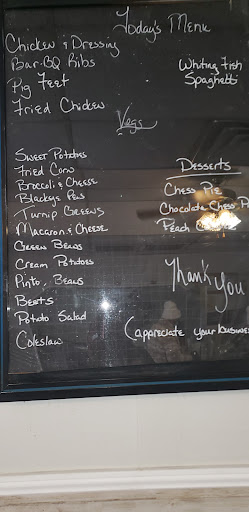 Today's Menu
Chicken & Dressing
Bar-BQ Ribs
Pig Feet
Fried Chicken
Whiting Fish
Spaghetti
Vegs
Sweet Potatoes
Fried Corn
Broccoli & Cheese
Blackeye Peas
Turnip Greens
Macaroni & Cheese
Green Beans
Cream Potatoes
Pinto Beans
Beets
Potato Salad
Coleslaw
Desserts
Chess Pie
Chocolate Chess
Peach
Thank
You
(appreciate your business